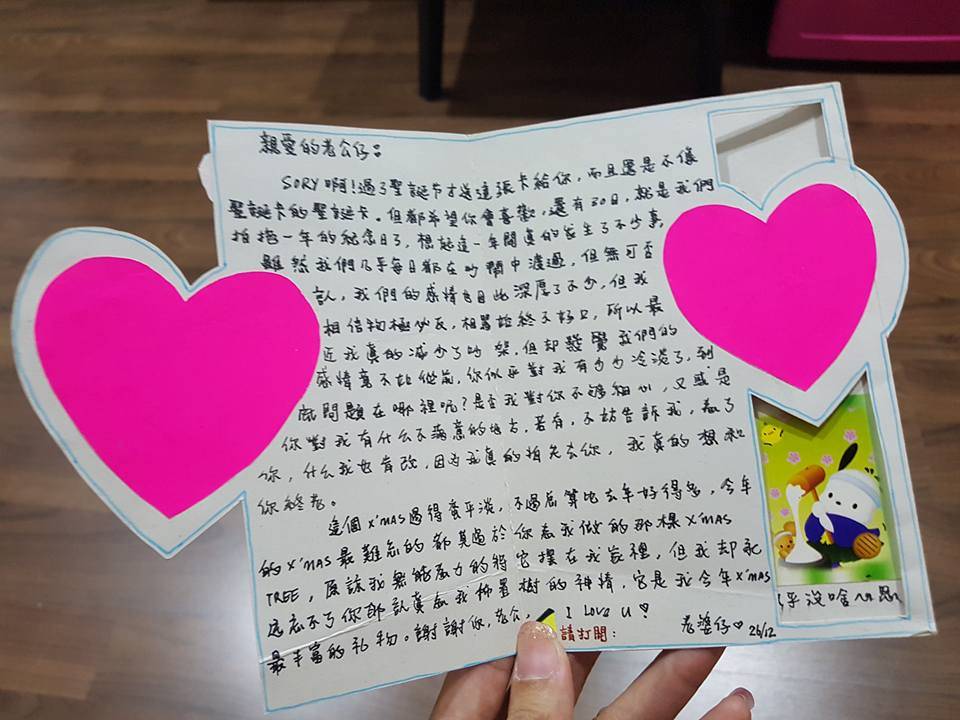 親愛的老公仔:
SORY 啊!過了聖誕节才送這張卡給你,而且還是不像
聖誕卡的聖誕卡。但都希望你會喜歡,還有30日,就是我們
拍拖一年的紀念日了,想起這一年間真的发生了不少事,
雖然我們几乎每日都在吵鬧中渡過,但無可否
認,我們的感情也因此深厚了不少,但我
相信物極必反,相罵詃終不好口,所以最
近我真的減少了吵架,但却發覺我們的
感情竟不如從前,你似乎對我有少少冷淡了,到
底問題在哪裡呢?是否我對你不夠細心,又或是
你對我有什么不滿意的地方,若有,不妨告訴我,為了
你,什么我也肯改,因为我真的怕失去你,我真的想和
你終老。
這個X'MAS過得蛮平淡,不過麻算比去年好得多,今年
的X'MAS最難忘的都莫過於你為我做的那棵X'MAS
TREE,應該我無能为力的將它摆在我家裡,但我却永
遠忘不了你那認真為我佈置樹的神情,它是我今年X'MAS
最丰富的礼物。謝謝你,老公, I Love U ♡
請打開: 老婆仔♡ 26/12
乎沒啥心思